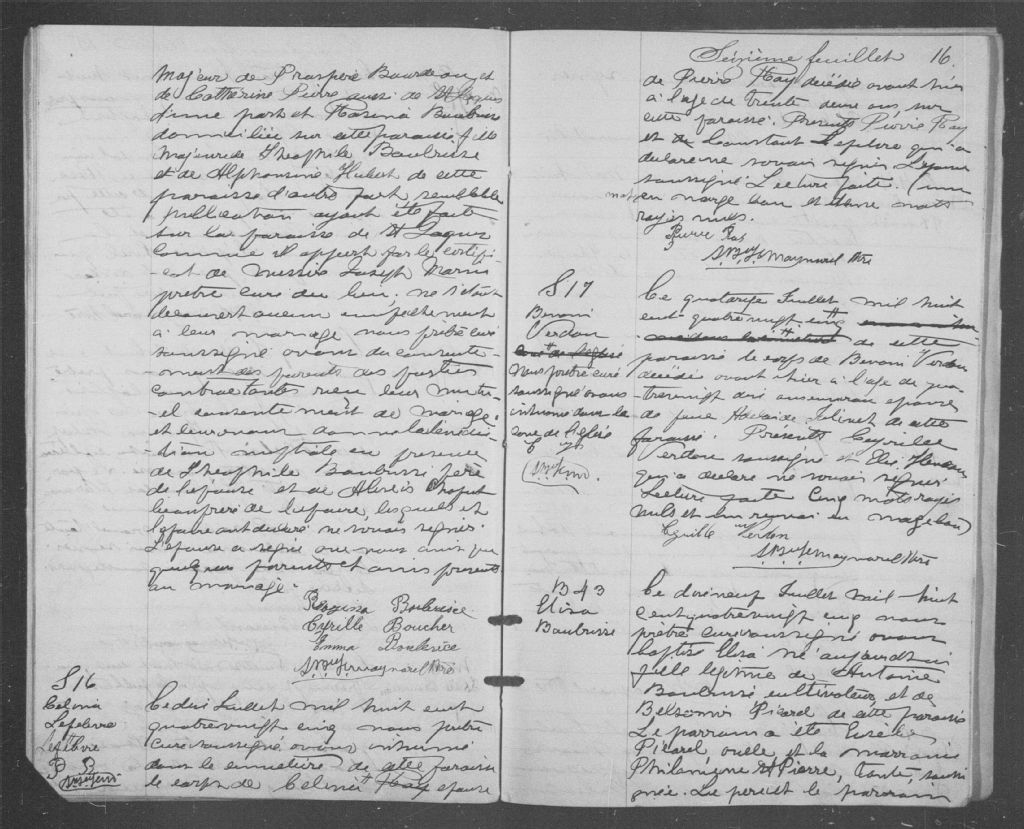 Majeur de Prospère Bourdeau et
de Catherine Piètre aussi de St Jacques
d'une part et Rosina Boubrisse
domiciliée sur cette paroisse fille
Majeure de Théophile Baubrisse
et de Alphonsine Hubert de cette
paroisse d'autre part semblable
publication ayant été faite
sur la paroisse de St Jaques
comme il appert par le certifi-
-cat de Messire Joseph Morin
prêtre curé du lieu, ne s'étant
découvert aucun empêchement
à leur mariage nous prêtre curé
soussigné avons du consente-
-ment des parents des parties
contractantes reçu leur mutu-
-el consentement de mariage,
et leur avons donné la bénédic-
-tion nuptiale en présence
de Théophile Baubrisse père
de l'épouse et de Alexis Choput
beaufrère de l'épouse, lesquels et
l'époux ont déclaré ne savoir signer.
L'épouse a signé avec nous ainsi que
quelques parents et amis présents
au mariage.
Rosina Boubrice
Cyrille Boucher
Emma Boubrice
Maynard Ptre
S 16
Celina
Lefebvre
Lefebvre
Ce dix Juillet mil huit cent
quatrevingt cinq nous prêtre
curé soussigné avons inhumé
dans le cimetière de cette paroisse
le corps de Celina Ray épouse
Seizième feuillet 16.
de Pierre Ray décédée avant hier
à l'age de trente deux ans sur
cette paroisse. Présents Pierre Ray
et Constant Lefebvre qui a
déclaré ne savoir signer. L'époux
soussigné. Lecture faite. Un
mot en marge bon et deux mots
rayés nuls.
Pierre Ray
Maynard Ptre
S 17
Benoni
Verdon
Nous prêtre curé
soussigné avons
inhumé dans la
cave de l'église
Ce quatorze Juillet mil huit
cent quatre vingt cinq
de cette
paroisse le corps de Benoni Verdon
décédé avant hier à l'age de qua-
-trevingt dix ans environ époux
de feue Adelaide de cette
paroisse. Présents Cyrille
Verdon soussigné et
qui a déclaré ne savoir signer
Lecture faite Cinq mots rayés
nuls et un renvoi en marge bon
Cyrille Verdon
Maynard Ptre
B 43
Eliza
Baubrisse
Ce dixneuf Juillet mil huit
cent quatrevingt cinq nous
prêtre curé soussigné avons
baptisé Eliza né aujourd'hui
fille légitime de Antoine
Baubrisse cultivateur et de
Picard de cette paroisse
Le parrain a été
Picard oncle et la marraine
Philomène St Pierre, tante, soussi
gnée. Le père et le parrain